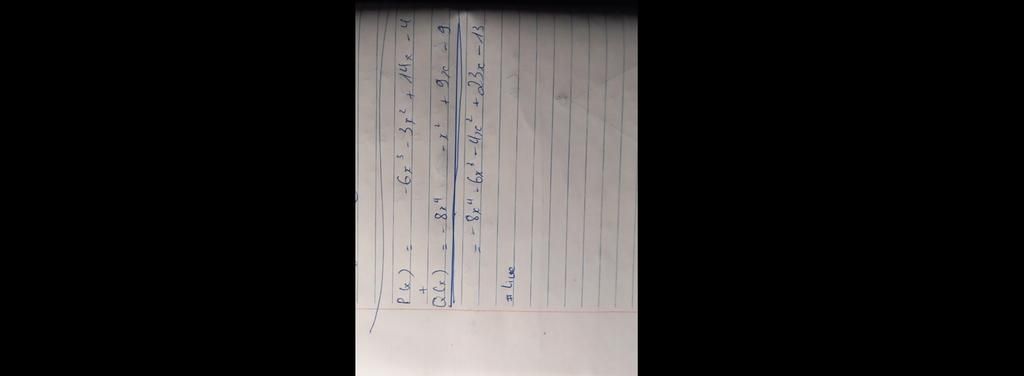 P(x) = -6x³ - 3x² + 14x - 4
+
Q(x) = -8x⁴ - x² + 9x - 9
= -8x⁴ - 6x³ - 4x² + 23x - 13
# Live